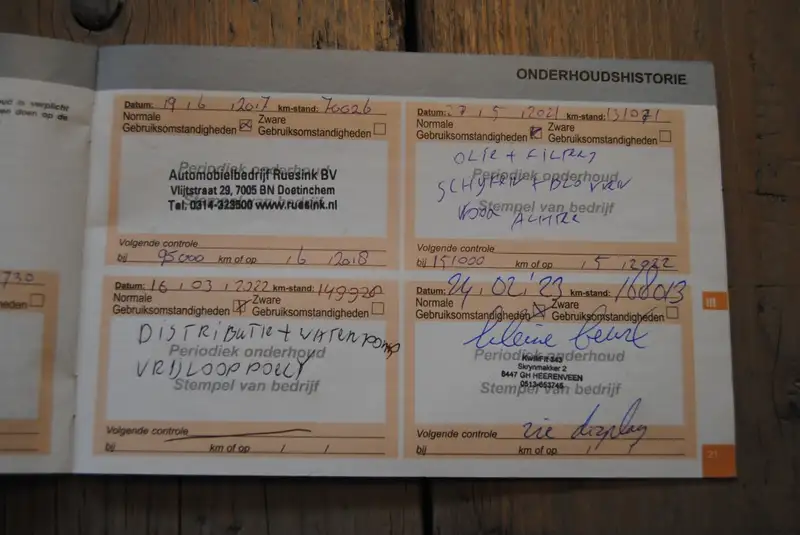 ONDERHOUDSHISTORIE
oud is verplicht
730
heden
Datum: 19 , 6 , 2017 km-stand: 70026
Normale
Gebruiksomstandigheden
Zware
Gebruiksomstandigheden
Periodiek onderhoud
Automobielbedrijf Ruesink BV
Vlijtstraat 29, 7005 BN Doetinchem
Stempel van bedrijf
Tel: 0314-323500 www.ruesink.nl
Volgende controle
bij 95000 km of op , 6 , 2018
Datum: 27 , 5 , 2021 km-stand: 131071
Normale
Gebruiksomstandigheden
Zware
Gebruiksomstandigheden
OLIE + FILTERS
Periodiek onderhoud
SCHIJVEN + BLOKKEN
Stempel van bedrijf
VOOR ACHTER
Volgende controle
bij 151000 km of op , 5 , 2022
Datum: 16 , 03 , 2022 km-stand: 149928
Normale
Gebruiksomstandigheden
Zware
Gebruiksomstandigheden
DISTRIBUTIE + WATERPOMP
Periodiek onderhoud
VRIJLOOP POELY
Stempel van bedrijf
Volgende controle
bij km of op / /
Datum: 24, 02, '23 km-stand: 168013
Normale
Gebruiksomstandigheden
Zware
Gebruiksomstandigheden
kleine beurt
Periodiek onderhoud
KwikFit 343
Skrynmakker 2
8447 GH HEERENVEEN
Stempel van bedrijf
0513-653745
Volgende controle zie display
bij km of op , ,
21